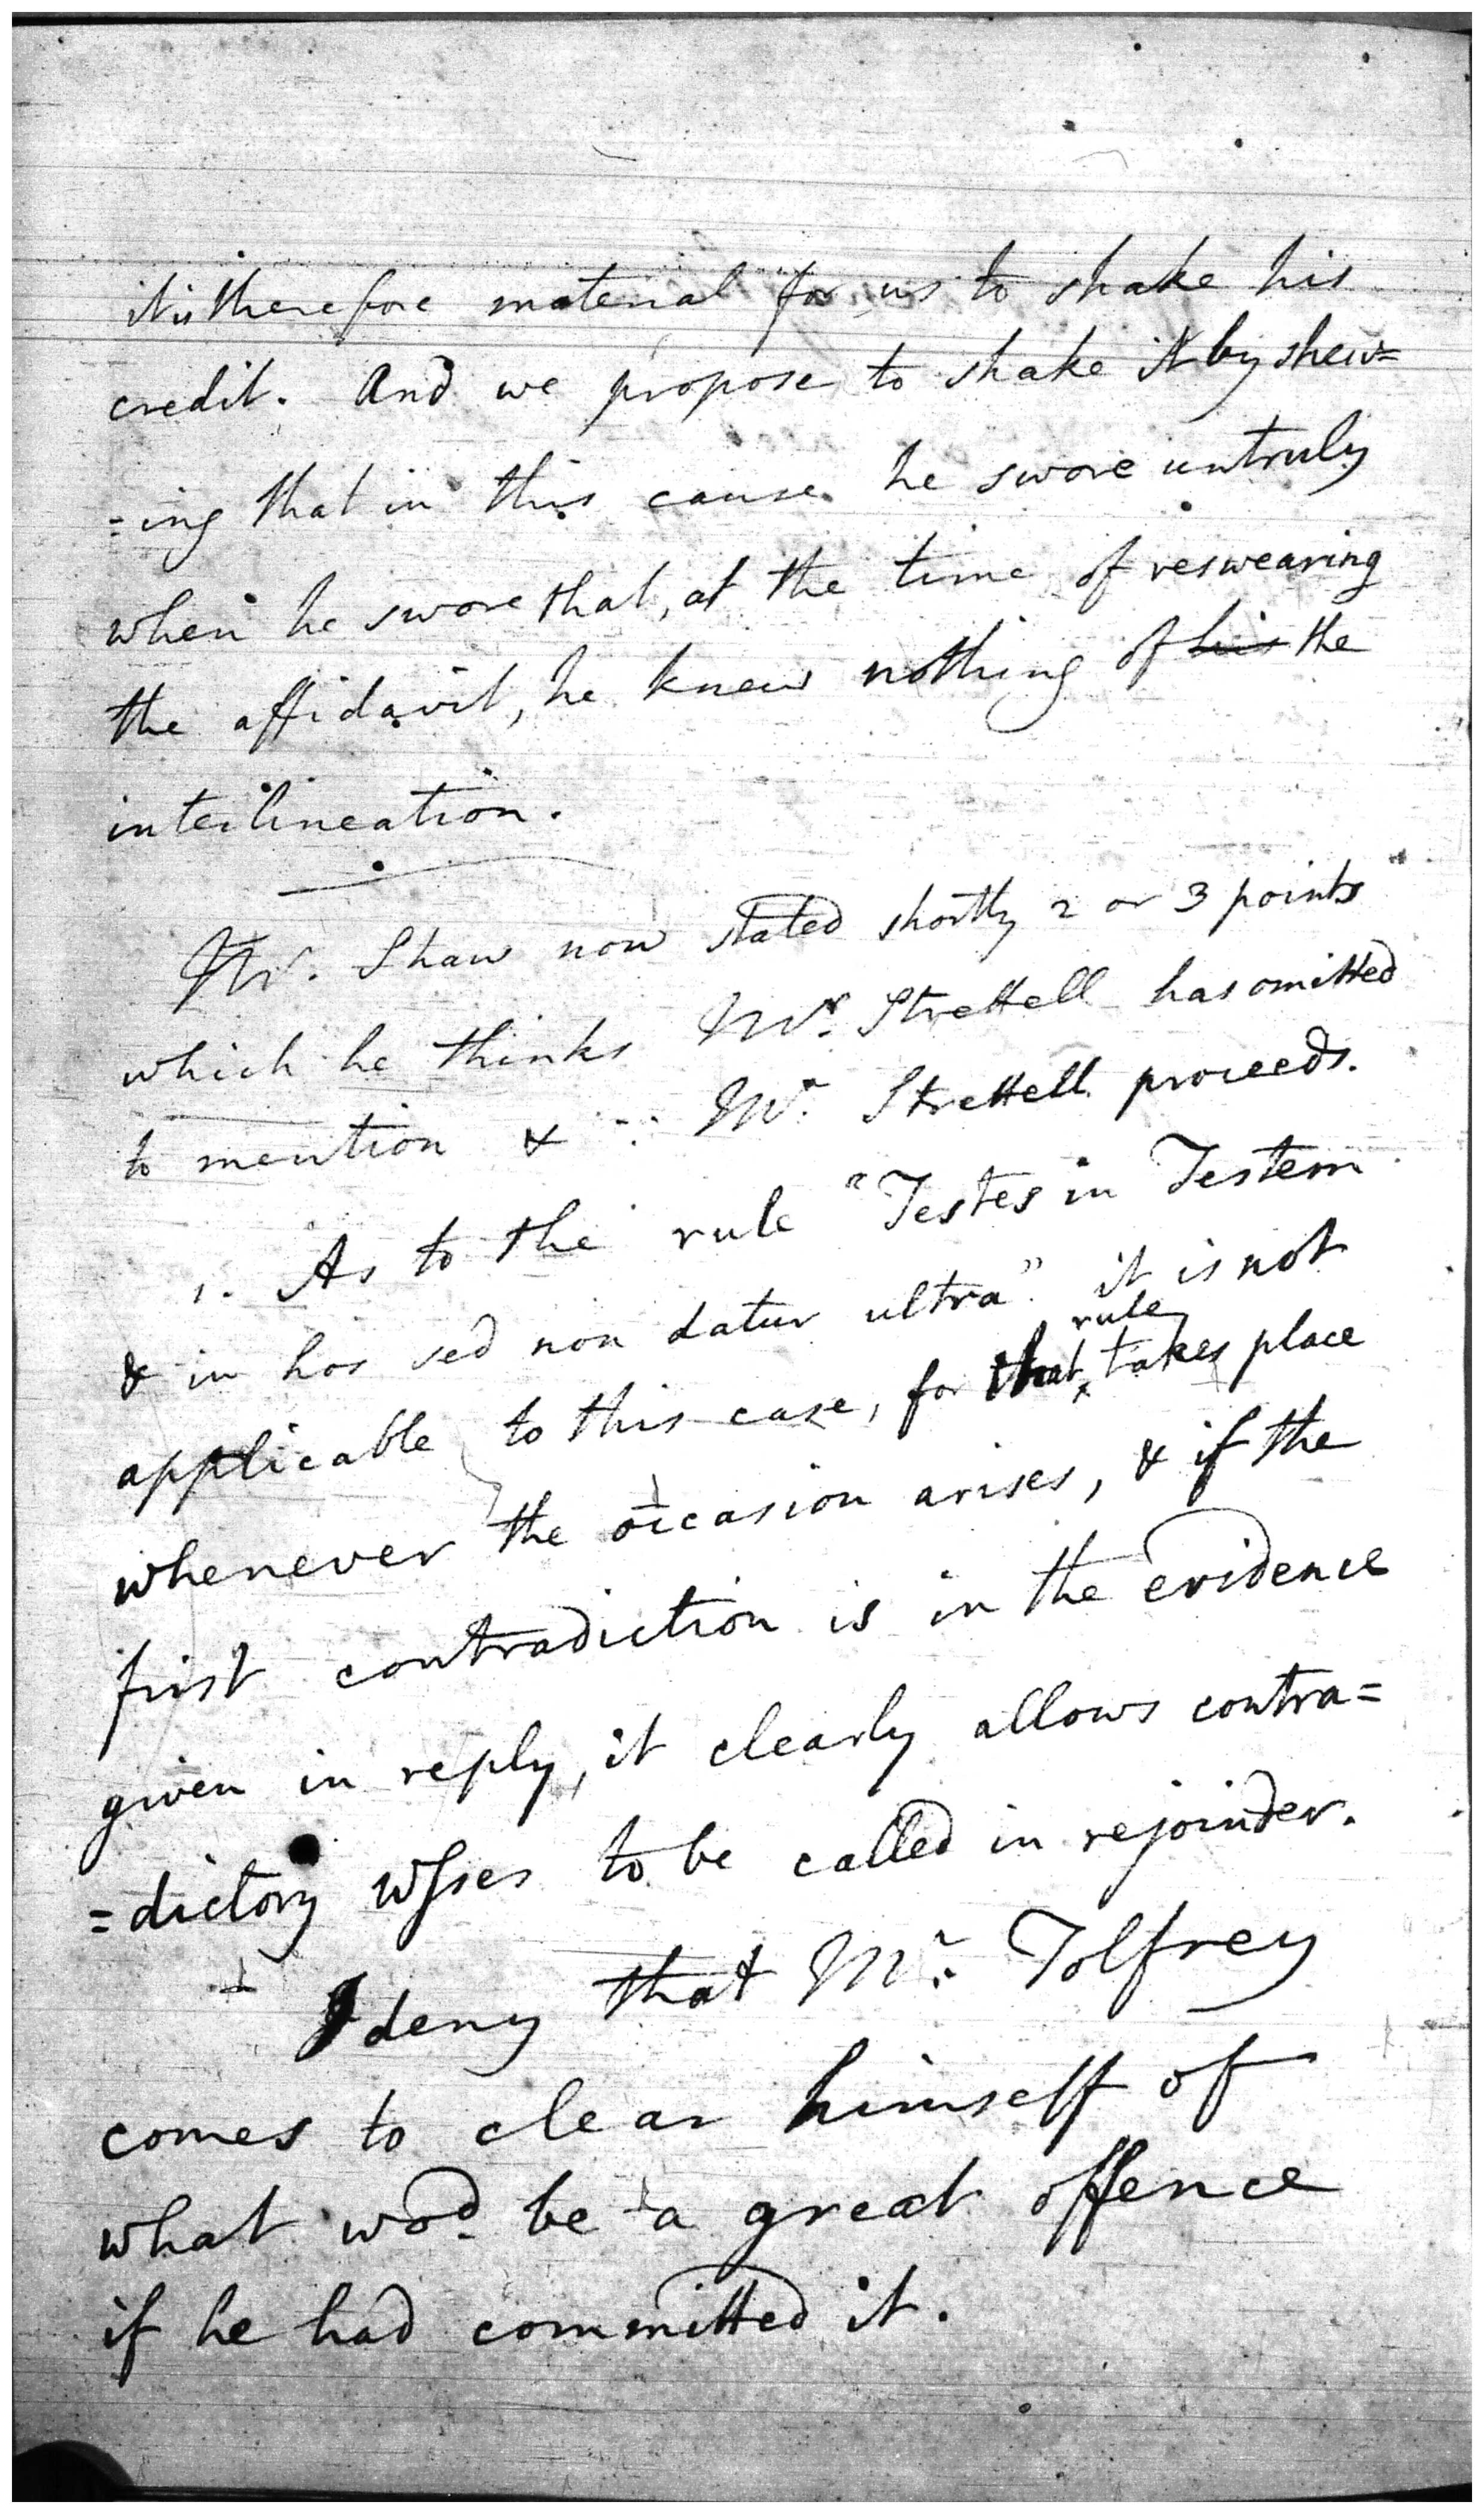 it is therefore material for us to shake his
credit. And we propose to shake it by shew=
=ing that in this cause he swore untruly
when he swore that, at the time of reswearing
the affidavit, he knew nothing of his the
interlineation.
Mr. Shaw now stated shortly 2 or 3 points
which he thinks Mr. Strettell has omitted
to mention & ∵ Mr. Strettell proceeds.
1. As to the rule "Testes in Testem
& in hos sed non datur ultra" it is not
applicable to this case, for that rule takes place
whenever the occasion arises, & if the
first contradiction is in the evidence
given in reply, it clearly allows contra=
=dictory wsses to be called in rejoinder.
I deny that Mr. Tolfrey
comes to clear himself of
what wod. be a great offence
if he had committed it.